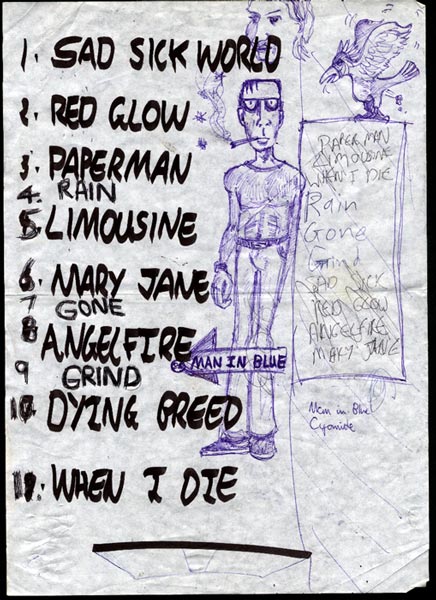 1. SAD SICK WORLD
2. RED GLOW
3. PAPERMAN
4. RAIN
5. LIMOUSINE
6. MARY JANE
7 GONE
8 ANGELFIRE
9 GRIND
10. DYING BREED
11. WHEN I DIE
MAN IN BLUE
PAPERMAN
LIMOUSINE
WHEN I DIE
Rain
Gone
Grind
SAD SICK
RED GLOW
ANGELFIRE
MARY JANE
Man in Blue
Cyanide